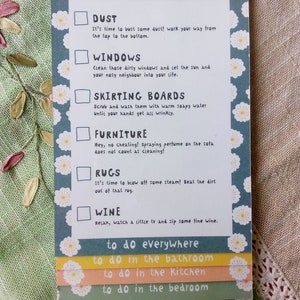 DUST
It's time to bust some dust! Work your way from
the top to the bottom.
WINDOWS
Clean those dirty windows and let the sun and
your nosy neighbour into your life.
SKIRTING BOARDS
Scrub and wash them with warm soapy water
until your hands get all wrinkly.
FURNITURE
Hey, no cheating! Spraying perfume on the sofa
does not count as cleaning!
RUGS
It's time to blow off some steam! Beat the dirt
out of that rug.
WINE
Relax, watch a little tv and sip some fine wine.
to do everywhere
to do in the bathroom
to do in the kitchen
to do in the bedroom